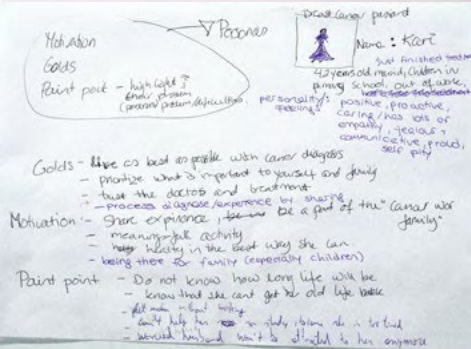 Personas
Motivation
Golds
Paint point - high light ?
Breast Cancer
Name : Kari
just finished
42 years old, children in
primary school, out of work,
personality/ positive, proactive,
feelings caring/has lots of
empathy, jealous,
communicative, proud,
self pity
Golds - Live as best as possible with cancer diagnosis
- priotize what is important to yourself and family
- trust the doctors and treatment
- process diagnose/experience by sharing
Motivation - Share expirence, be a part of the "cancer war
family"
- meaningfull activity
- in the best why she can.
- being there for family (especially children)
Paint point - Do not know how long life will be
- know that she cant get old life back
- without working
- can't help her so study, she is too tired
- worried husband won't be attracted to her anymore